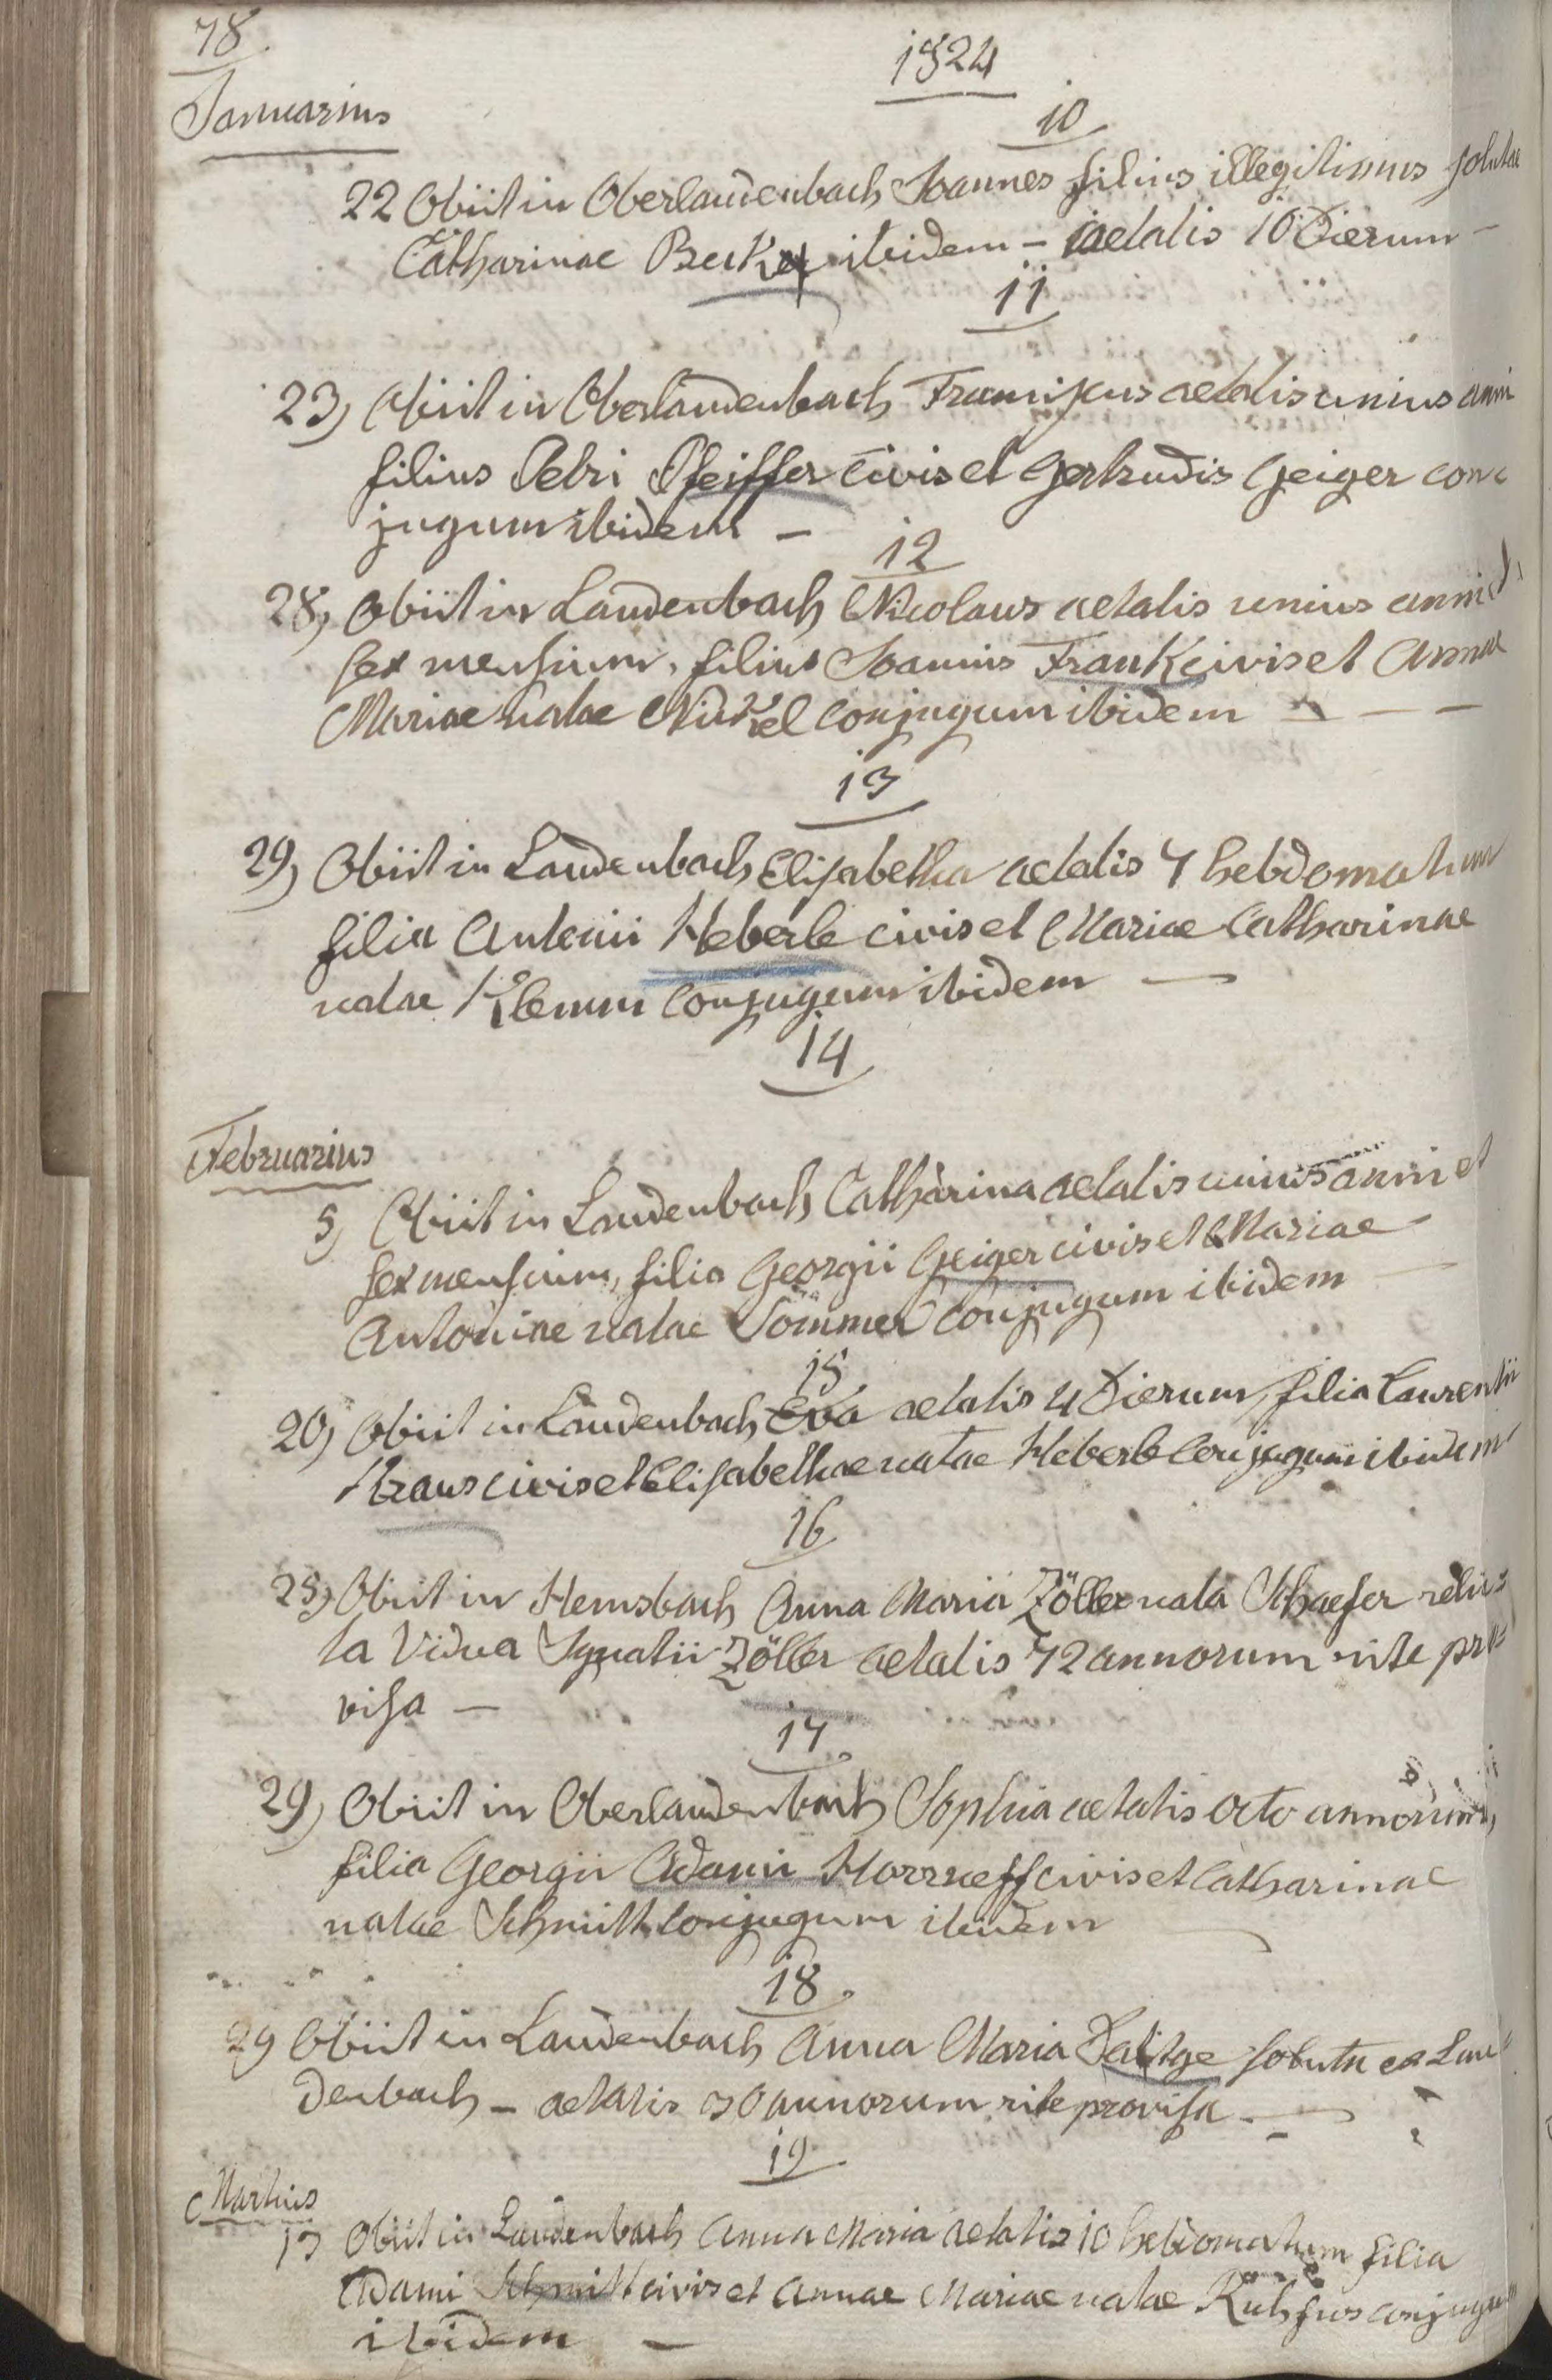 78.
1824
Januarius
10
22 Obiit in Oberlaudenbach Joannes filius illegitimus solutae
Catharinae Becker ibidem – aetatis 10 Dierum –
11
23) Obiit in Oberlaudenbach Franciscus aetatis unius anni
filius Petri Pfeiffer civis et Gertrudis Geiger con
jugum ibidem –
12
28) Obiit in Laudenbach Nicolaus aetatis unius anni et
sex mensium, filius Joannis Frank civis et Annae
Mariae natae Nickel conjugum ibidem – – –
13
29) Obiit in Laudenbach Elisabetha aetatis 7 hebdomatum
filia Antonii Heberle civis et Mariae Catharinae
natae Klemm conjugum ibidem –
14
Februarius
5) Obiit in Laudenbach Catharina aetatis unius anni et
sex mensium, filia Georgii Geiger civis et Mariae
Antoniae natae Sommer conjugum ibidem –
15
20) Obiit in Laudenbach Eva aetatis 4 Dierum, filia Laurentii
Kraus civis et Elisabethae natae Heberle conjugum ibidem
16
25) Obiit in Hemsbach Anna Maria Zöller nata Schaefer relic
ta Vidua Ignatii Zöller aetatis 72 annorum rite pro
visa –
17.
29) Obiit in Oberlaudenbach Sophia aetatis octo annorum,
filia Georgii Adami Horrneff civis et Catharinae
natae Schmitt conjugum ibidem
18.
29 Obiit in Laudenbach Anna Maria soluta ex Lau
denbach – aetatis 30 annorum rite provisa. –
19.
Martius
13 Obiit in Laudenbach Anna Maria aetatis 10 hebdomatum filia
Adami Schmitt civis et Annae Mariae natae conjugum
ibidem –